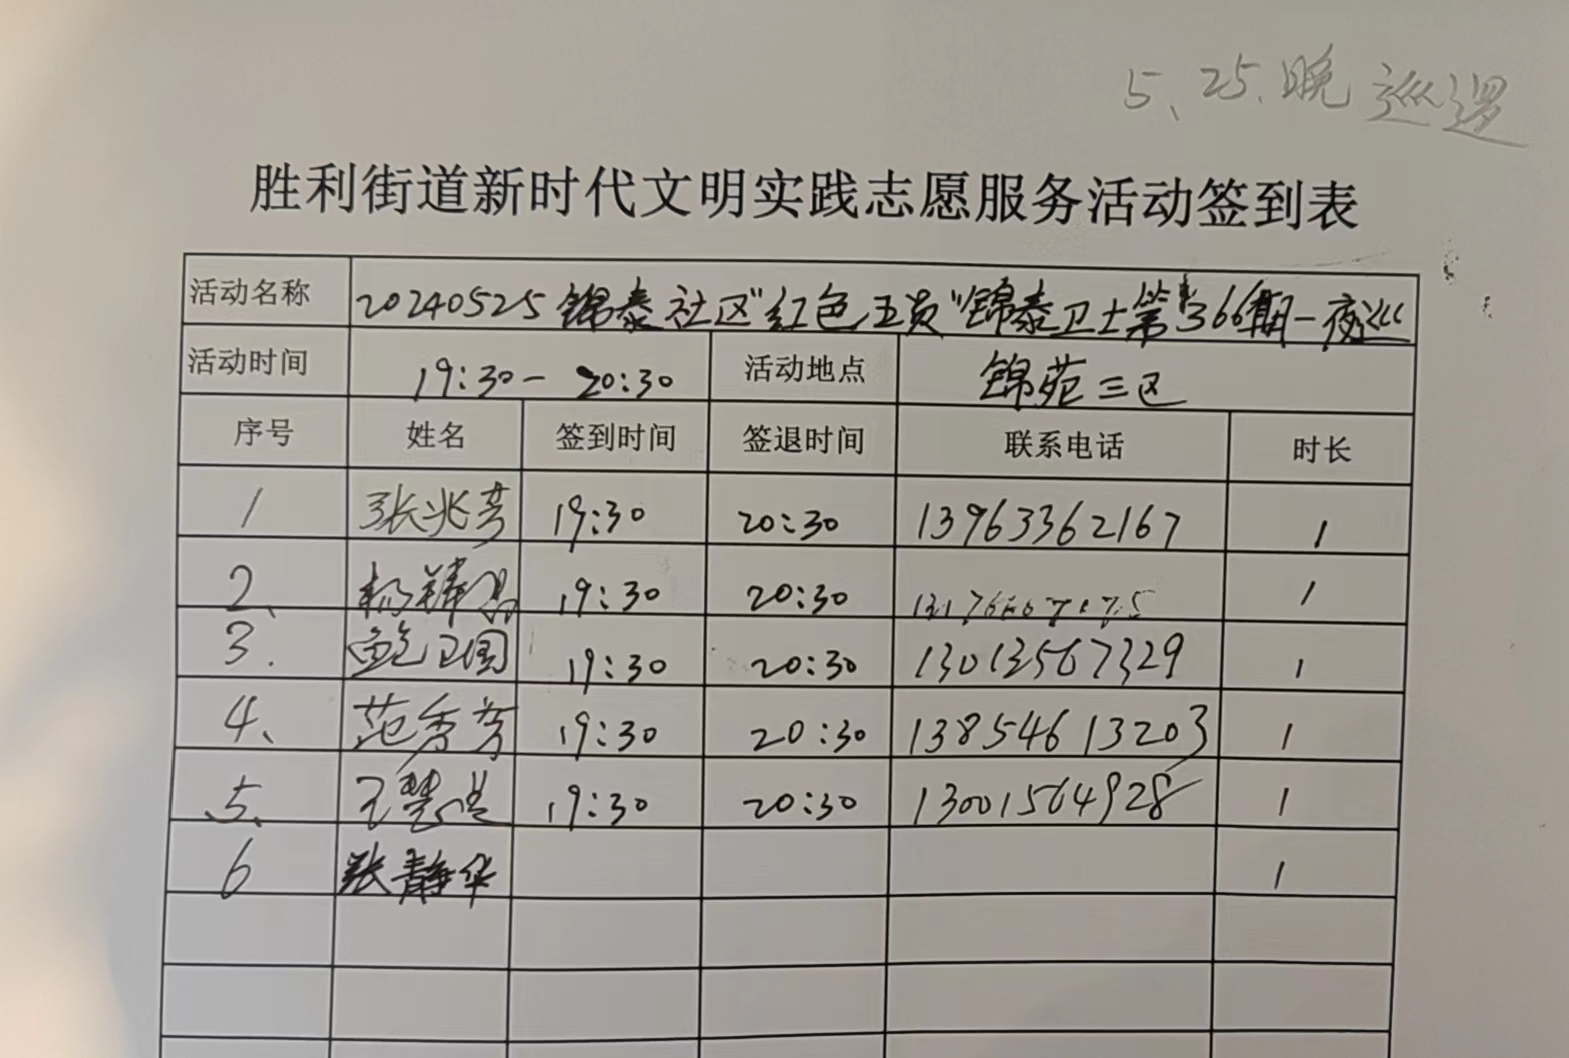 5、25.晚巡逻
胜利街道新时代文明实践志愿服务活动签到表
活动名称 20240525锦泰社区"红色五员"锦泰卫士第366期-夜巡
活动时间 19:30- 20:30 活动地点 锦苑三区
序号 姓名 签到时间 签退时间 联系电话 时长
1 张兆芳 19:30 20:30 13963362167 1
2、 杨 19:30 20:30 1
3. 鲍卫国 19:30 20:30 13013567329 1
4、 范秀芳 19:30 20:30 13854613203 1
5、 王慧 19:30 20:30 13001564928 1
6 张静华 1